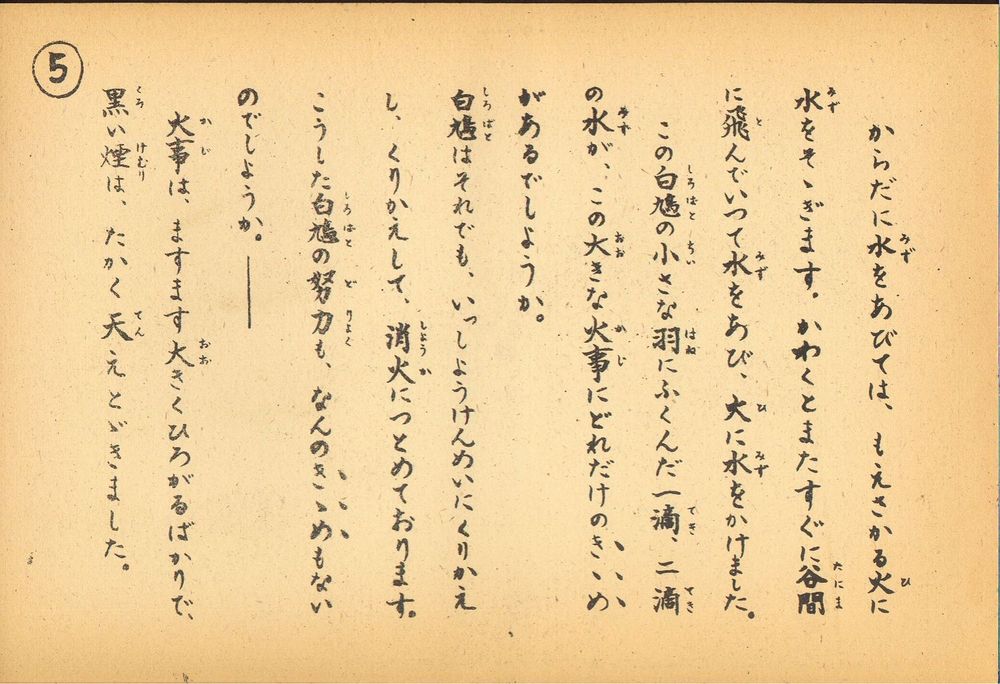 ⑤
からだに水をあびては、もえさかる火に
水をそゝぎます。かわくとまたすぐに谷間
に飛んでいつて水をあび、火に水をかけました。
この白鳩の小さな羽にふくんだ一滴、二滴
の水が、この大きな火事にどれだけのきゝめ
があるでしようか。
白鳩はそれでも、いっしようけんめいにくりかえ
し、くりかえして、消火につとめております。
こうした白鳩の努力も、なんのきゝめもない
のでしようか。――
火事は、ますます大きくひろがるばかりで、
黒い煙は、たかく天えとゞきました。